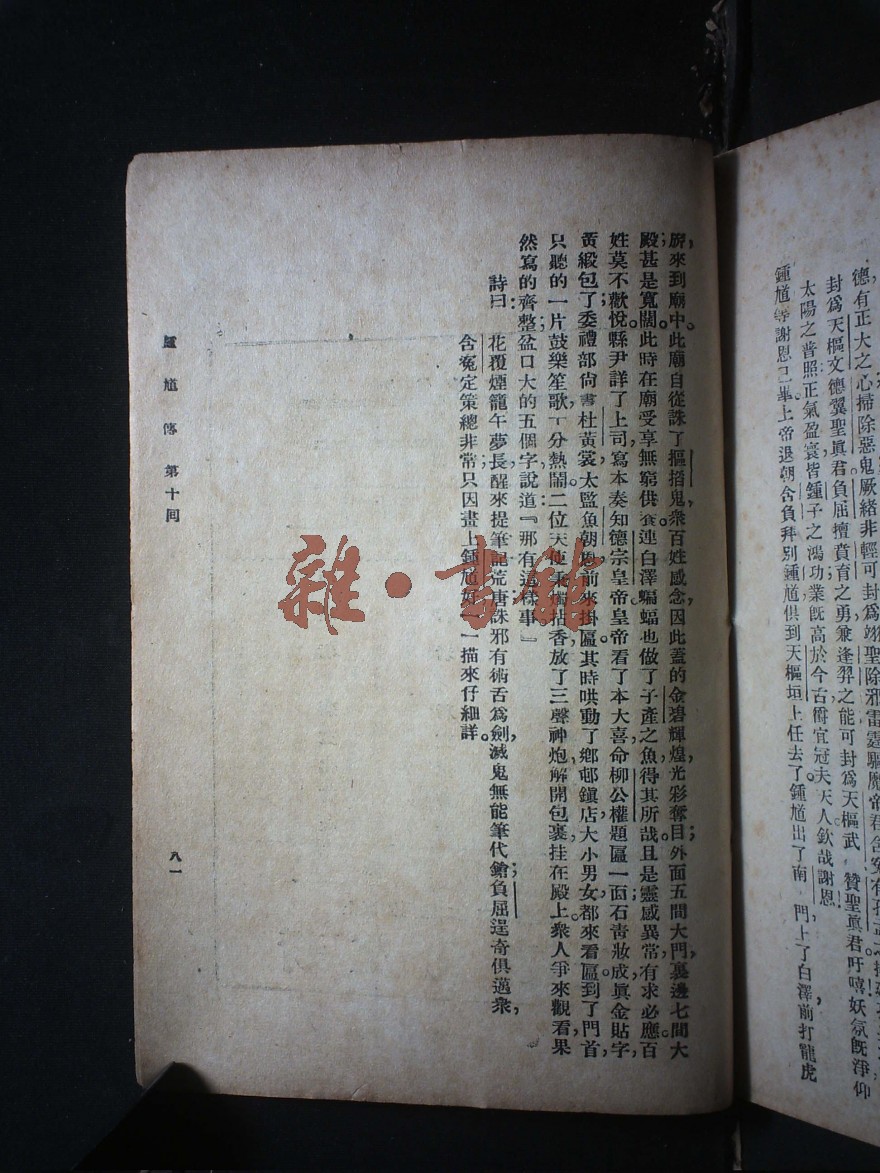 德有正大之心掃除惡鬼厥績非輕可封爲翊聖除邪雷霆驅魔帝君含冤有孫
封爲天樞文德翼聖眞君負屈擅賁育之勇兼逢羿之能可封爲天樞武贊聖眞君吁嘻妖氛旣淨仰
太陽之普照正氣盈寰皆鍾子之鴻功業旣高於今古爵宜冠夫天人欽哉謝恩
鍾馗等謝恩已畢上帝退朝含負拜別鍾馗俱到天樞垣上任去了鍾馗出了南門上了白澤前打龍虎
旂，來到廟中。此廟自從誅了摳掐鬼，衆百姓感念，因此蓋的金碧輝煌，光彩奪目；外面五間大門，裏邊七間大
殿；甚是寬闊。此時在廟受享無窮供養。連白澤，蝙蝠也做了子產之魚，得其所哉；且是靈感異常，有求必應。百
姓莫不歡悅；縣尹詳了上司，寫本奏知德宗皇帝，皇帝看了本大喜，命柳公權題匾一面，石青妝成，眞金貼字，
黃緞包了，委禮部尚書杜黃裳，太監魚朝恩前來掛匾。其時哄動了鄉邨鎮店，大小男女都來看匾。到了門首，
只聽的一片鼓樂笙歌，十分熱鬧。二位天使秉燭拈香，放了三聲神炮，解開包裹，挂在殿上。衆人爭來觀看，果
然寫的齊整；盆口大的五個字，說道：『那有這樣事。』
詩曰：花覆煙籠午夢長，醒來提筆記荒唐；誅邪有術舌爲劍，滅鬼無能筆代鎗；負屈逞奇俱邁衆，
含冤定策總非常；只因畫上鍾馗好，一一描來仔細詳。
鍾馗傳 第十回
八一
雜·書館